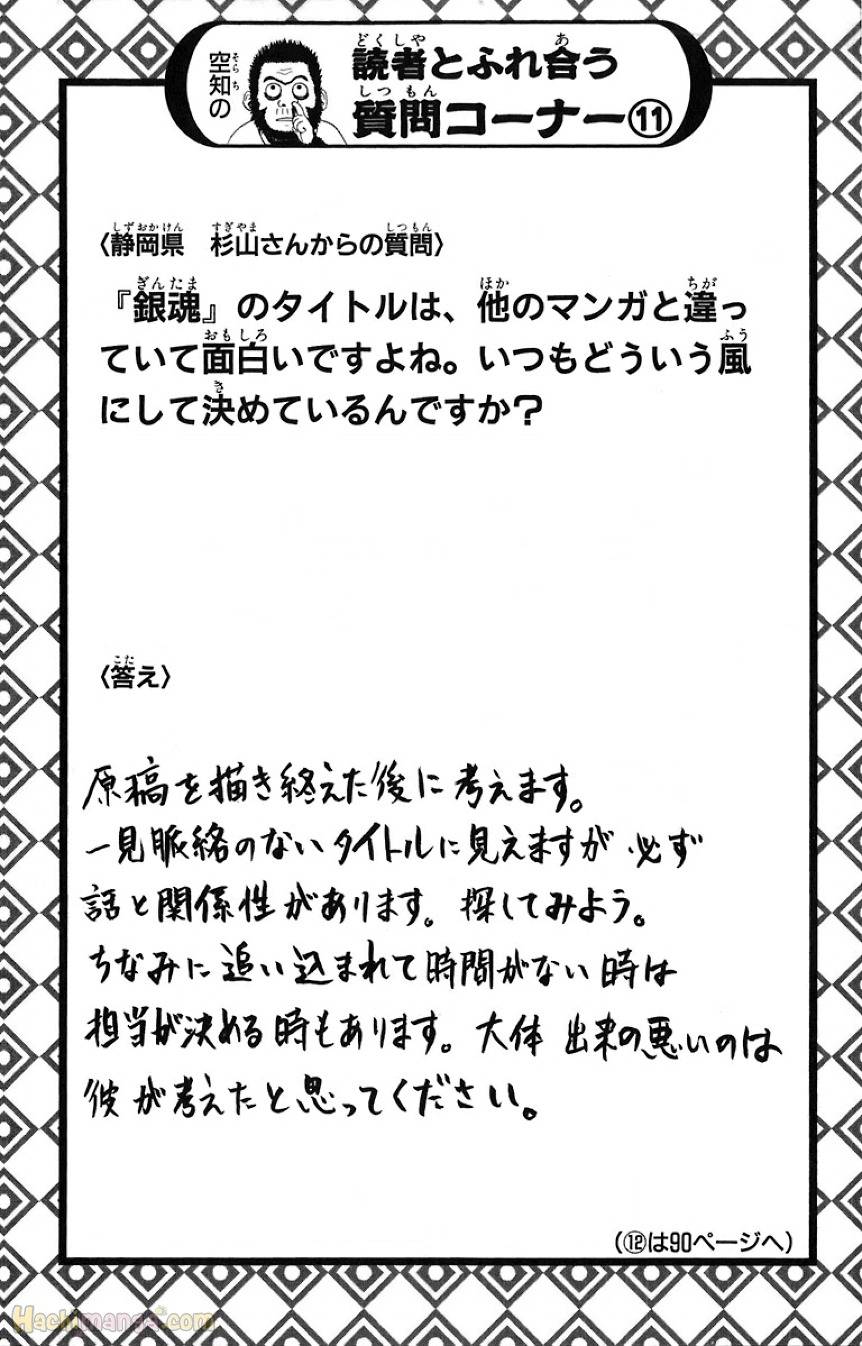 空知の
読者とふれ合う
質問コーナー⑪
〈静岡県　杉山さんからの質問〉
『銀魂』のタイトルは、他のマンガと違っ
ていて面白いですよね。いつもどういう風
にして決めているんですか？
〈答え〉
原稿を描き終えた後に考えます。
一見脈絡のないタイトルに見えますが 必ず
話と関係性があります。探してみよう。
ちなみに追い込まれて時間がない時は
担当が決める時もあります。大体 出来の悪いのは
彼が考えたと思ってください。
（⑫は90ページへ）
Hachimanga.com